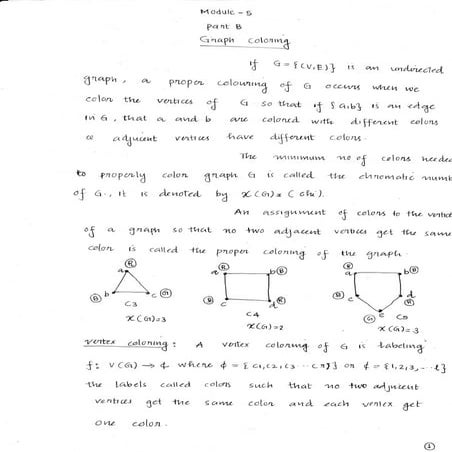 Module - 5
part B
Graph coloring
If G = {(V,E)} is an undirected
graph, a proper colouring of G occurs when we
color the vertices of G so that if {a,b} is an edge
in G, that a and b are colored with different colors
ie adjucent vertices have different colors.
The minimum no of colors neede
to properly color graph G is called the chromatic numb
of G., It is denoted by χ(G) = (chi).
An assignment of colors to the vertice
of a graph so that no two adjacent vertices get the same
color is called the proper coloring of the graph
R R B R B
a a b a b
b c c d c d
B G B R B R
C3 C4 e G C5
χ(G)=3 χ(G)=2 χ(G)=3
vertex coloring : A vertex coloring of G is labeling
f: V(G) → ¢ where ¢ = {c1,c2,c3 ... cn} or ¢ = {1,2,3,...
the labels called colors such that no two adjucent
vertices get the same color and each vertex get
one color.
1